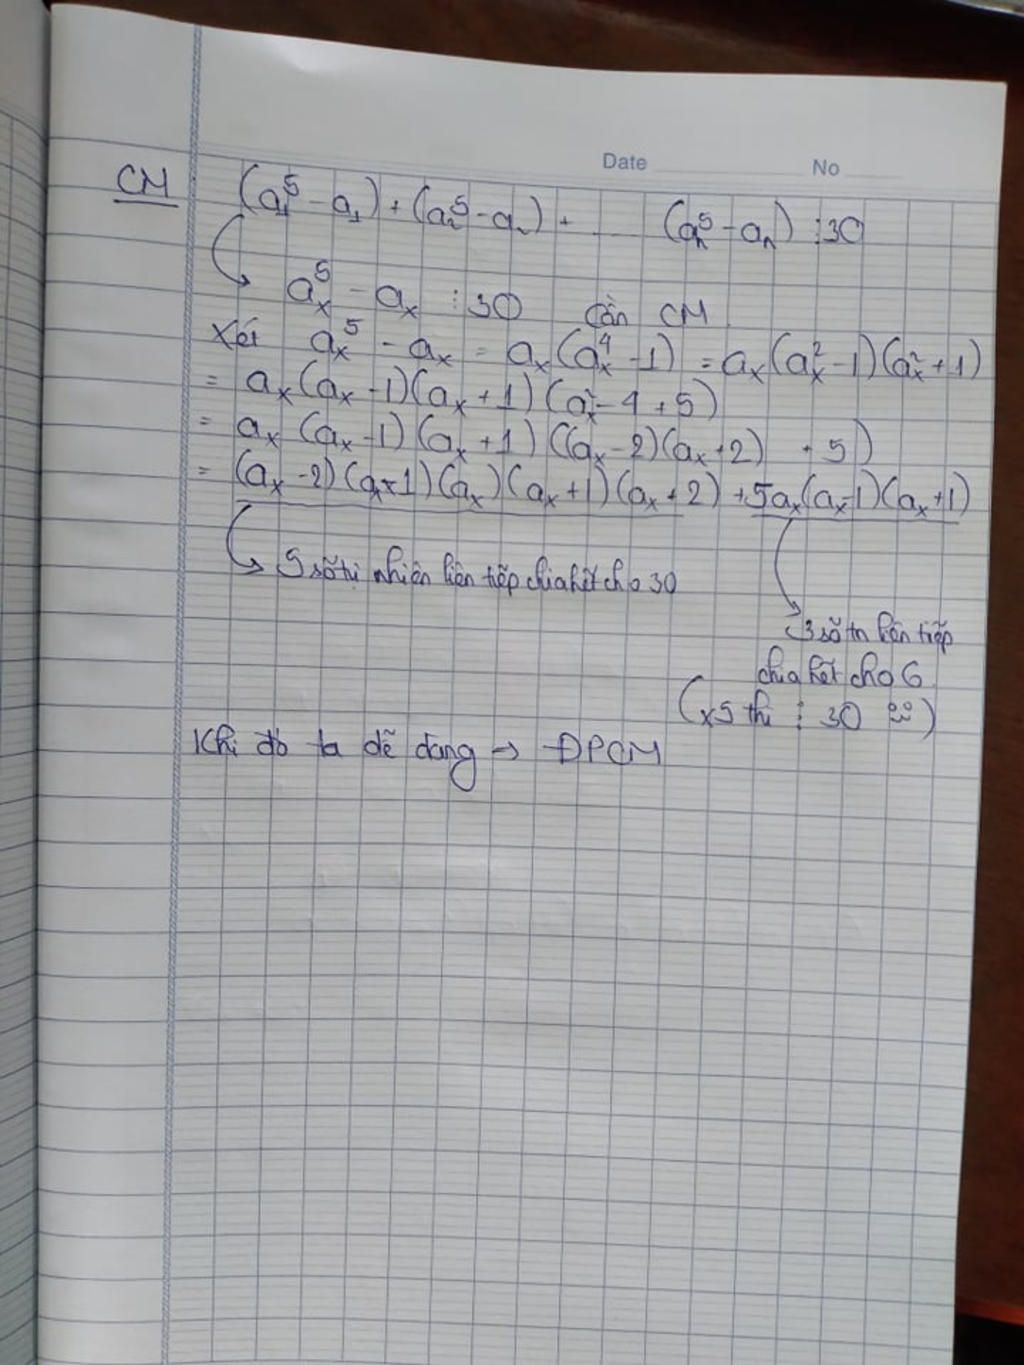 Date No
CM (a₁⁵ - a₁) + (a₂⁵ - a₂) + ... (aₙ⁵ - aₙ) ⋮ 30
aₓ⁵ - aₓ ⋮ 30 cần CM
Xét aₓ⁵ - aₓ = aₓ(aₓ⁴ - 1) = aₓ(aₓ² - 1)(aₓ² + 1)
= aₓ(aₓ - 1)(aₓ + 1)(aₓ² - 4 + 5)
= aₓ(aₓ - 1)(aₓ + 1)((aₓ - 2)(aₓ + 2) + 5)
= (aₓ - 2)(aₓ - 1)(aₓ)(aₓ + 1)(aₓ + 2) + 5aₓ(aₓ - 1)(aₓ + 1)
5 số tự nhiên liên tiếp chia hết cho 30
3 số tn liên tiếp
chia hết cho 6
(x5 thì ⋮ 30)
Khi đó ta dễ dàng → ĐPCM